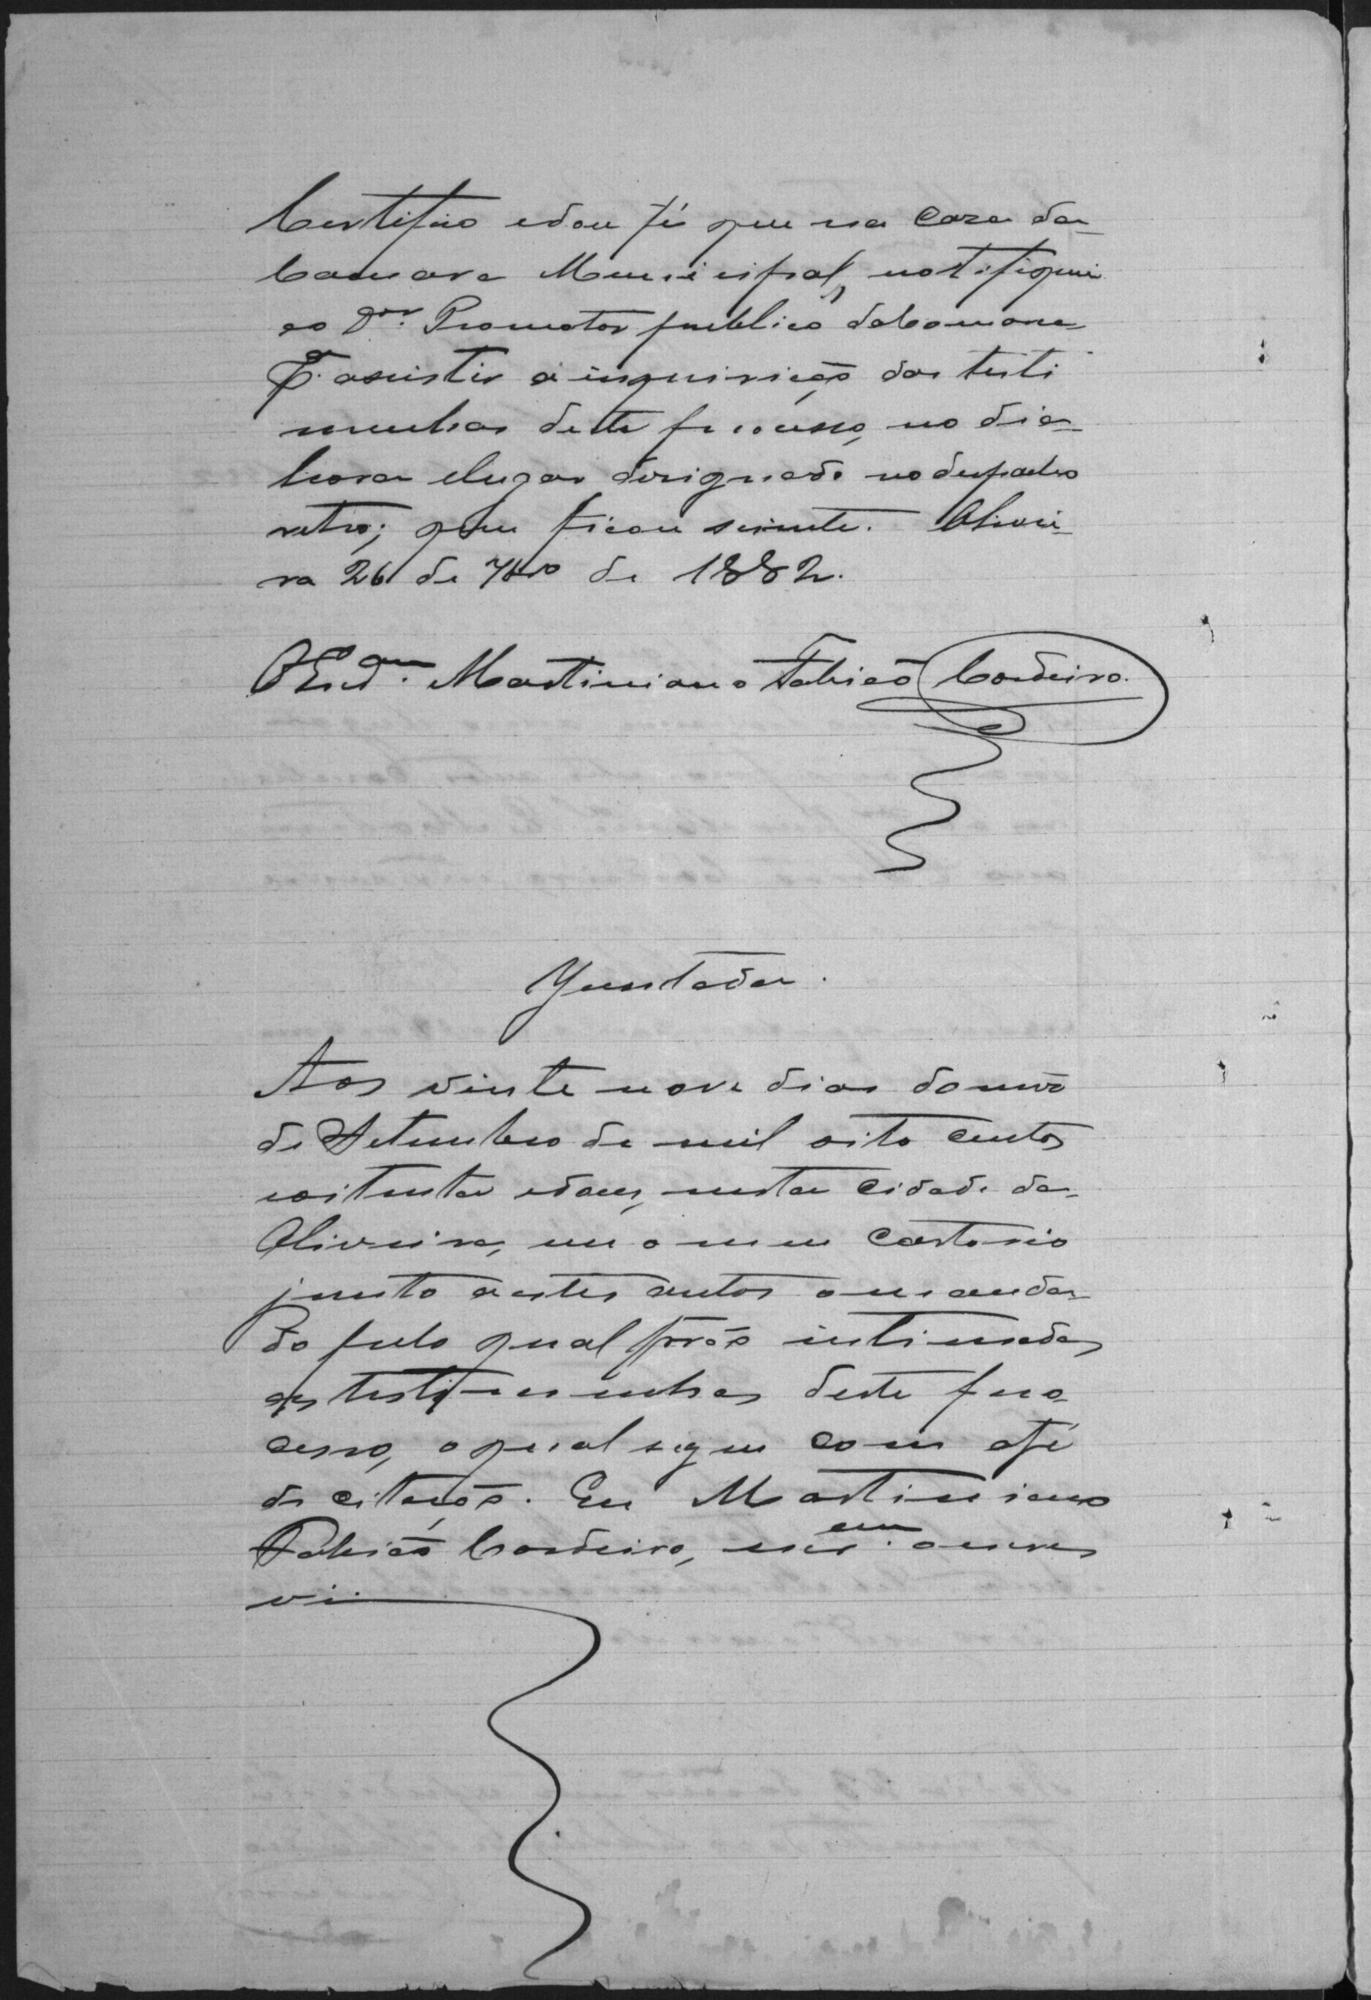 Certifico edou fé que na caza da
Camara Municipal, notifiquei
ao Dor. Promotor publico daComarca
Pa. assistir a inquirição das testi
munhas deste processo, no dia
hora elugar designado nodespacho
retro; que ficou sciente. Olivei-
ra 26 de 7bro de 1882.
OEscram. Martiniano Fabião Cordeiro.
Juntada.
Aos vinte nove dias domez
de Setembro de mil oito centos
eoitenta edous, nesta cidade da
Oliveira, em o meu cartorio
junto aestes autos omanda-
do pelo qual forão intimadas
as testimunhas deste pro-
cesso, oqual segue com afé
de citação. Eu Martiniano
Fabião Cordeiro, escram. oescre
vi.